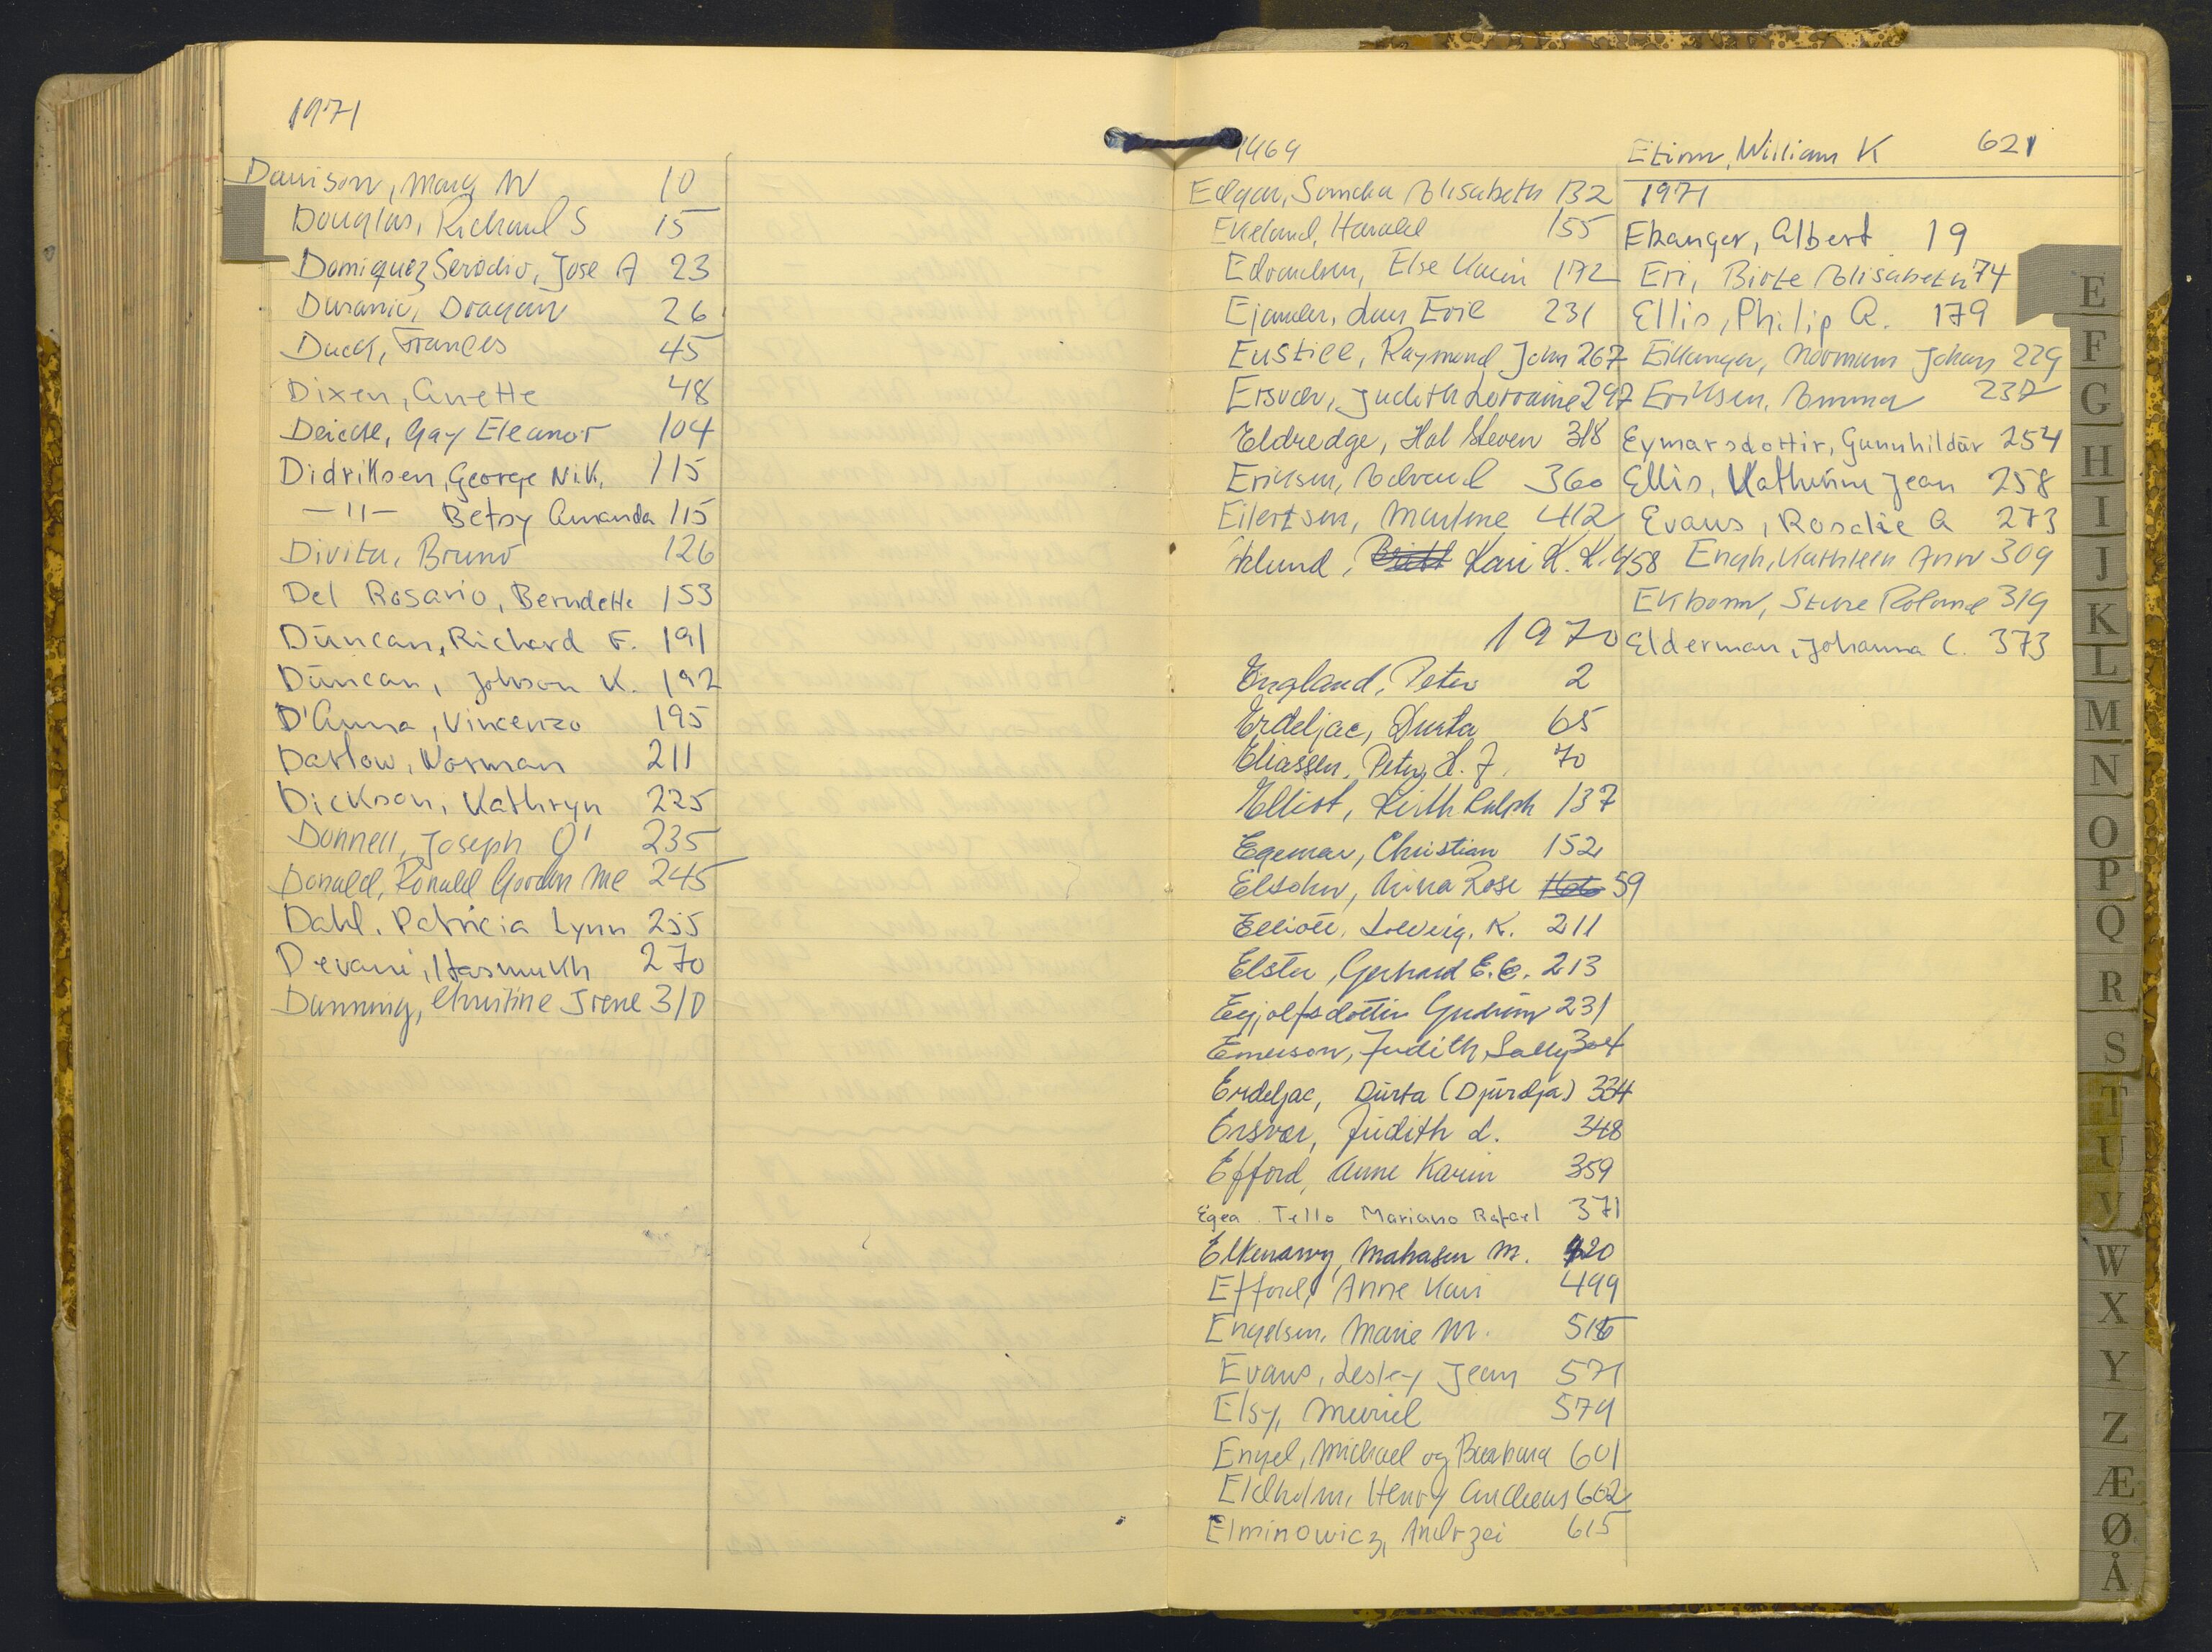 1971
Davison, Mary W 10
Douglas, Richard S 15
Domiquez Serodio, Jose A 23
Duranic, Dragan 26
Duck, Frances 45
Dixen, Anette 48
Deicke, Gay Eleanor 104
Didriksen, George N.K. 115
—"— Betsy Amanda 115
Divita, Bruno 126
Del Rosario, Berndette 153
Duncan, Richard F. 191
Duncan, Johson K. 192
D'Anna, Vincenzo 195
Darlow, Norman 211
Dickson, Kathryn 225
Donnell, Joseph O' 235
Donald, Ronald Gordon Mc 245
Dahl, Patricia Lynn 255
Devani, Hasmukh 270
Dunning, Christine Irene 310
1969
Edgar, Sandra Elisabeth 132
Ekeland, Harald 155
Edvardsen, Else Karin 172
231
Eustice, Raymond John 267
Ersvær, Judith Lorraine 297
Eldredge, Hal Steven 318
Eriksen, Edvard 360
Eilertsen, Marlene 412
Eklund, Kari K. K. 458
1970
England, Peter 2
Erdeljac, Durta 65
Eliassen, Peter H. J. 70
Elliot, Keith Ralph 137
Egemar, Christian 152
Elsohn, Nina Rose 59
Elliott, Solveig. K. 211
Elster, Gerhard E.C. 213
Eyjolfsdottir Gudrun 231
Emerson, Judith Sally 304
Erdeljac, Durta (Djurdja) 334
Ersvær, Judith L. 348
Efford, Anne Karin 359
Egea Tello Mariano Rafael 371
Elkenawy, Mahasen M. 420
Efford, Anne Kari 499
Engelsen, Marie M. 515
Evans, Lesley Jean 571
Elsy, Muriel 579
Engel, Michael og Barbara 601
Eldholm, Henry Andreas 602
Elminowicz, Andrzei 615
William K 621
1971
Ekanger, Albert 19
Eri, Birte Elisabeth 74
Ellis, Philip A. 179
Eikanger, Normann Johan 229
Eriksen, Emma 237
Eymarsdottir, Gunnhildur 254
Ellis, Kathrine Jean 258
Evans, Rosalie A 273
Engh, Kathleen Ann 309
Ekbom, Sture Roland 319
Elderman, Johanna C. 373
E
F
G
H
I
J
K
L
M
N
O
P
Q
R
S
T
U
y
W
X
Y
Z
Æ
Ø
Å